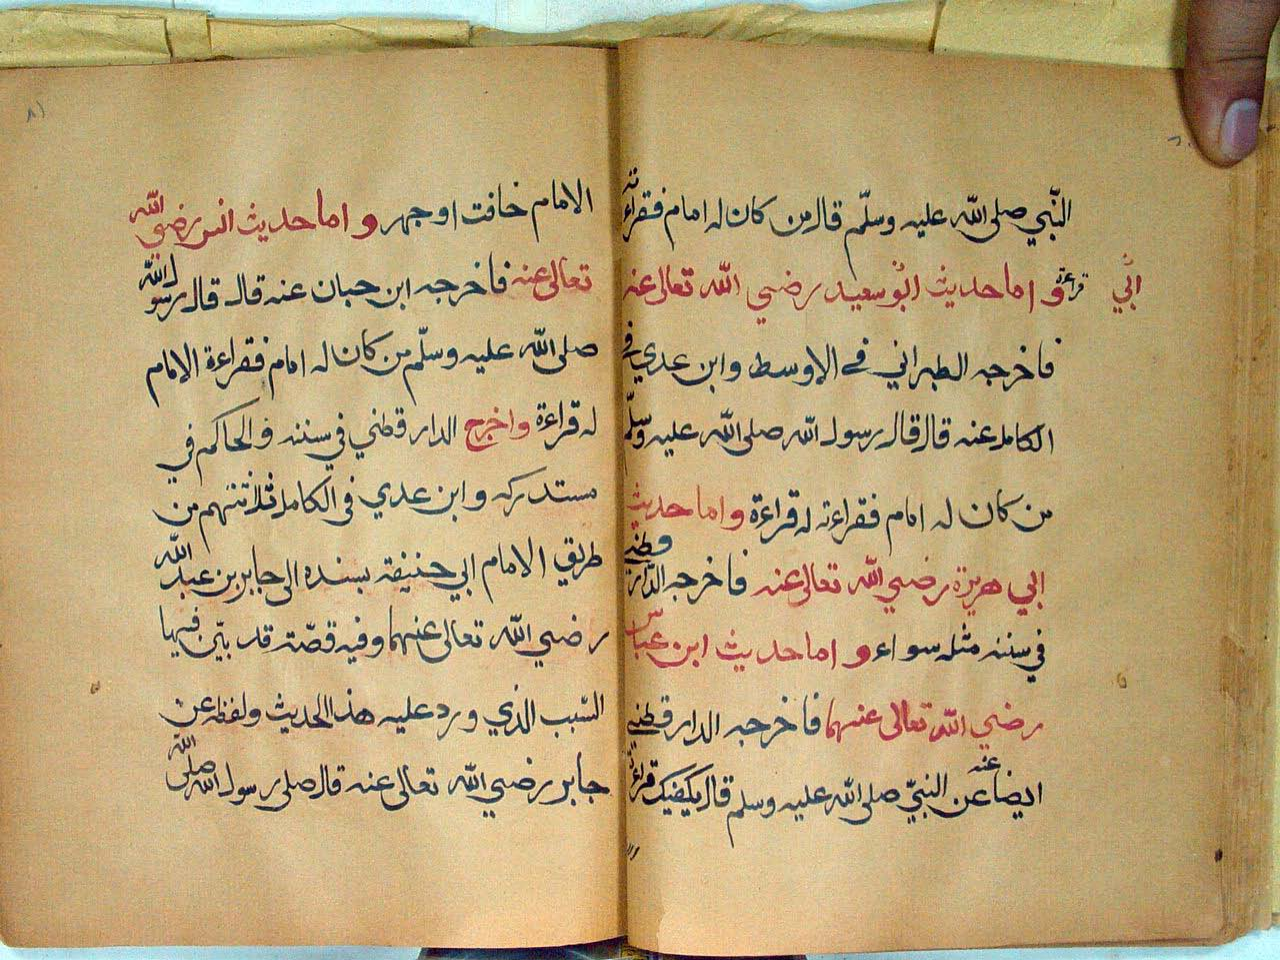 النّبي صلى اللّه عليه وسلّم قال من كان له امام فقراءته
قراءة واما حديث ابُو سعيد رضي اللّه تعالى عنه
ابُي
فاخرجه الطبراني في الاوسط وابن عدي في
الكامل عنه قال قال رسول اللّه صلى اللّه عليه وسلّم
من كان له امام فقراءته له قراءة واما حديث
ابي هريرة رضي اللّه تعالى عنه فاخرجه الدّارقطني
في سننه مثله سواء واما حديث ابن عبّاس
رضي اللّه تعالى عنهما فاخرجه الدارقطني
ايضا عنه عن النبيّ صلى اللّه عليه وسلم قال يكفيك قراءة
٨١
الامام خافت اوجهر واما حديث انس رضي اللّه
تعالى عنه فاخرجه ابن حبان عنه قال قال رسول اللّه
صلى اللّه عليه وسلّم من كان له امام فقراءة الامام
له قراءة واخرج الدارقطني في سننه والحاكم في
مستدركه وابن عدي في الكامل ثلاثتهم من
طريق الامام ابي حنيفة بسنده الى جابر بن عبد اللّه
رضي اللّه تعالى عنهما وفيه قصّة قد بيّن فيها
السّبب الذي ورد عليه هذا الحديث ولفظه عن
جابر رضي اللّه تعالى عنه قال صلى رسول اللّه صلى اللّه